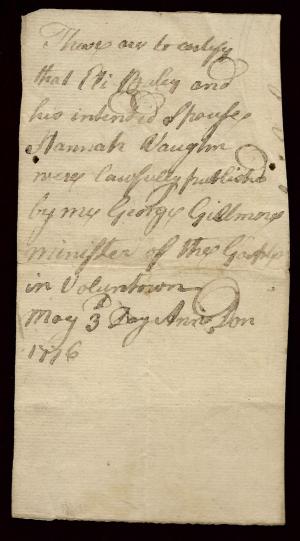 These are to certify
that Eli Baley and
his intended Spouse
Hannah Vaughn
were Lawfully published
by me George Gillmore
minister of the Gospel
in Voluntown
May 3 Day Anno Dom